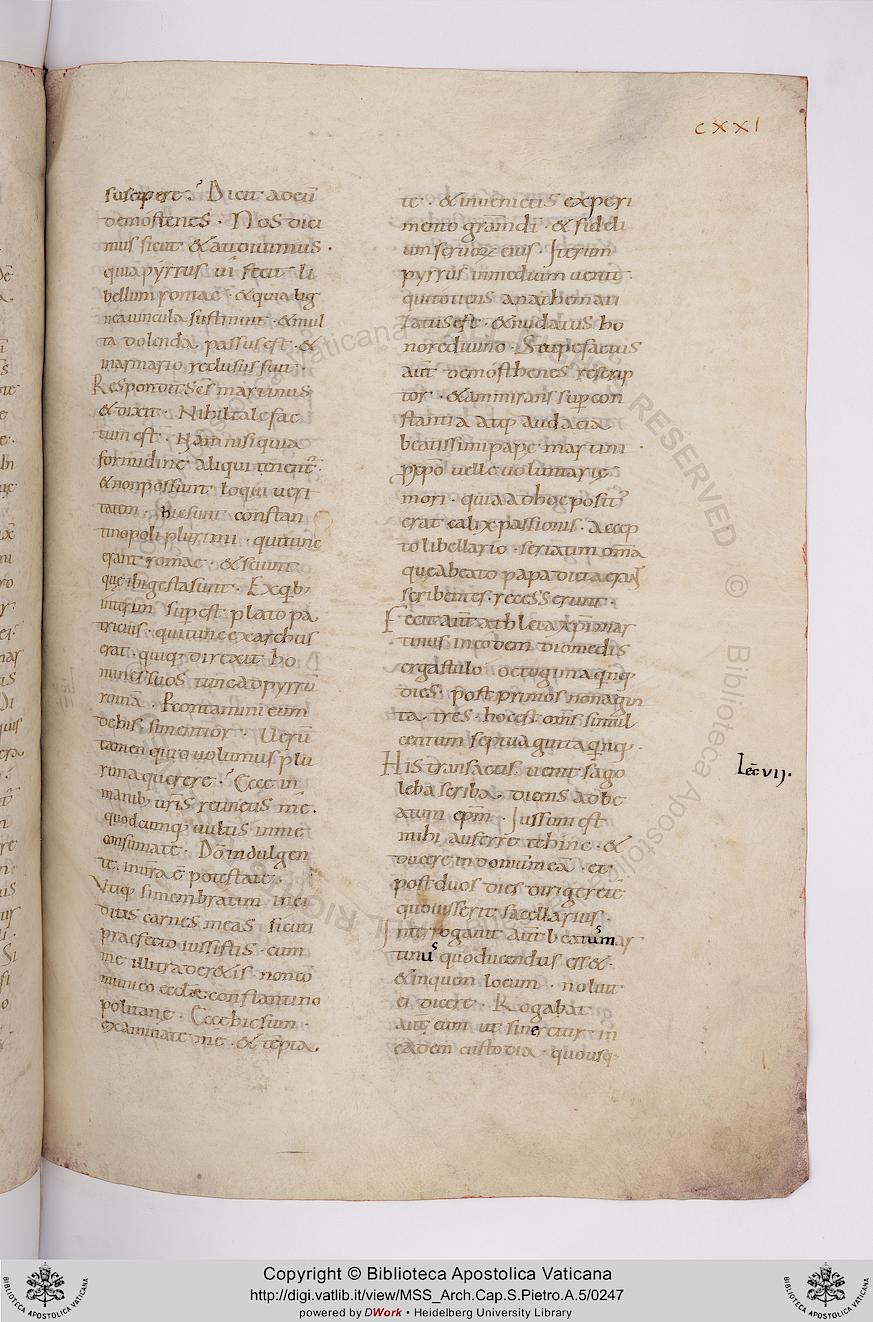 CXXI
suscipere? Dicit ad eū
demostenes · Nos dici
mus sicut & audiuimus ·
quia pyrrus ui fecit li
bellum romae · & quia lig
nea uincula sustinuit · & mul
ta dolenda passus est · &
Respondit scs martinus
& dixit · Nihil tale fac
tum est · Nam nisi quia
formidine aliqui
& non possunt loqui ueri
tatem · hic sunt constan
tinopoli plurimi · qui tunc
erant romae · & sciunt
quę ibi gesta sunt · Ex qb;
interim sup est plato pa
tricius · qui tunc exarchus
erat · quiq; direxit ho
mines suos tunc ad pyrrū
romā · Percontamini eum
debis si mentior · Uerū
tamen quid uolumus plu
rima querere? Ecce in
manib; uris retinetis me ·
quodcumq; uultis in me
consumate · Dō indulgen
te · in ura ē potestate ·
Utiq; si membratim inci
ditis carnes meas sicut
praefecto iussistis · cum
me illi traderetis · non cō
munico eccłae constantino
politane · Ecce hic sum ·
examinate me · & tēpta
te · & inuenietis experi
mento grandi · & fideli
um seruoꝝ eius · Iterum
pyrrus in medium uenit ·
qui totiens anathemati
zatus est · & nudatus ho
nore diuino · Stupefactus
aūt demosthenes & scrip
tor · & ammirans sup con
stantia atq; audacia
beatissimi pape martini ·
ꝓpositō uelle uoluntarie
mori · quia ad hoc posit
erat calix passionis · accep
to libellario · seriatim omīa
que a beato papa dicta erāt
scribentes recesserunt ·
Fecit aūt athleta xp̄i mar
tinus in eodem diomedis
ergastulo octoginta qnq;
dies · post primos nonagin
ta tres · hoc est omīs simul
centum septuaginta qnq; ·
His transactis · uenit sago
leba scriba · dicens ad be
atum epm̄ · Iussum est
mihi auferre te hinc · &
ducere in domum meā · et
post duos dies dirigere te
quo iusserit sacellarius ·
Interrogauit aūt beatus mar
tinus quo ducendus ess& ·
& in quem locum · noluit
ei dicere · Rogabat
aūt eum ut sineretur in
eadem custodia · quousq;
Lec̄ VIJ.
Copyright © Biblioteca Apostolica Vaticana
http://digi.vatlib.it/view/MSS_Arch.Cap.S.Pietro.A.5/0247
powered by DWork • Heidelberg University Library
BIBLIOTECA APOSTOLICA VATICANA
BIBLIOTECA APOSTOLICA VATICANA